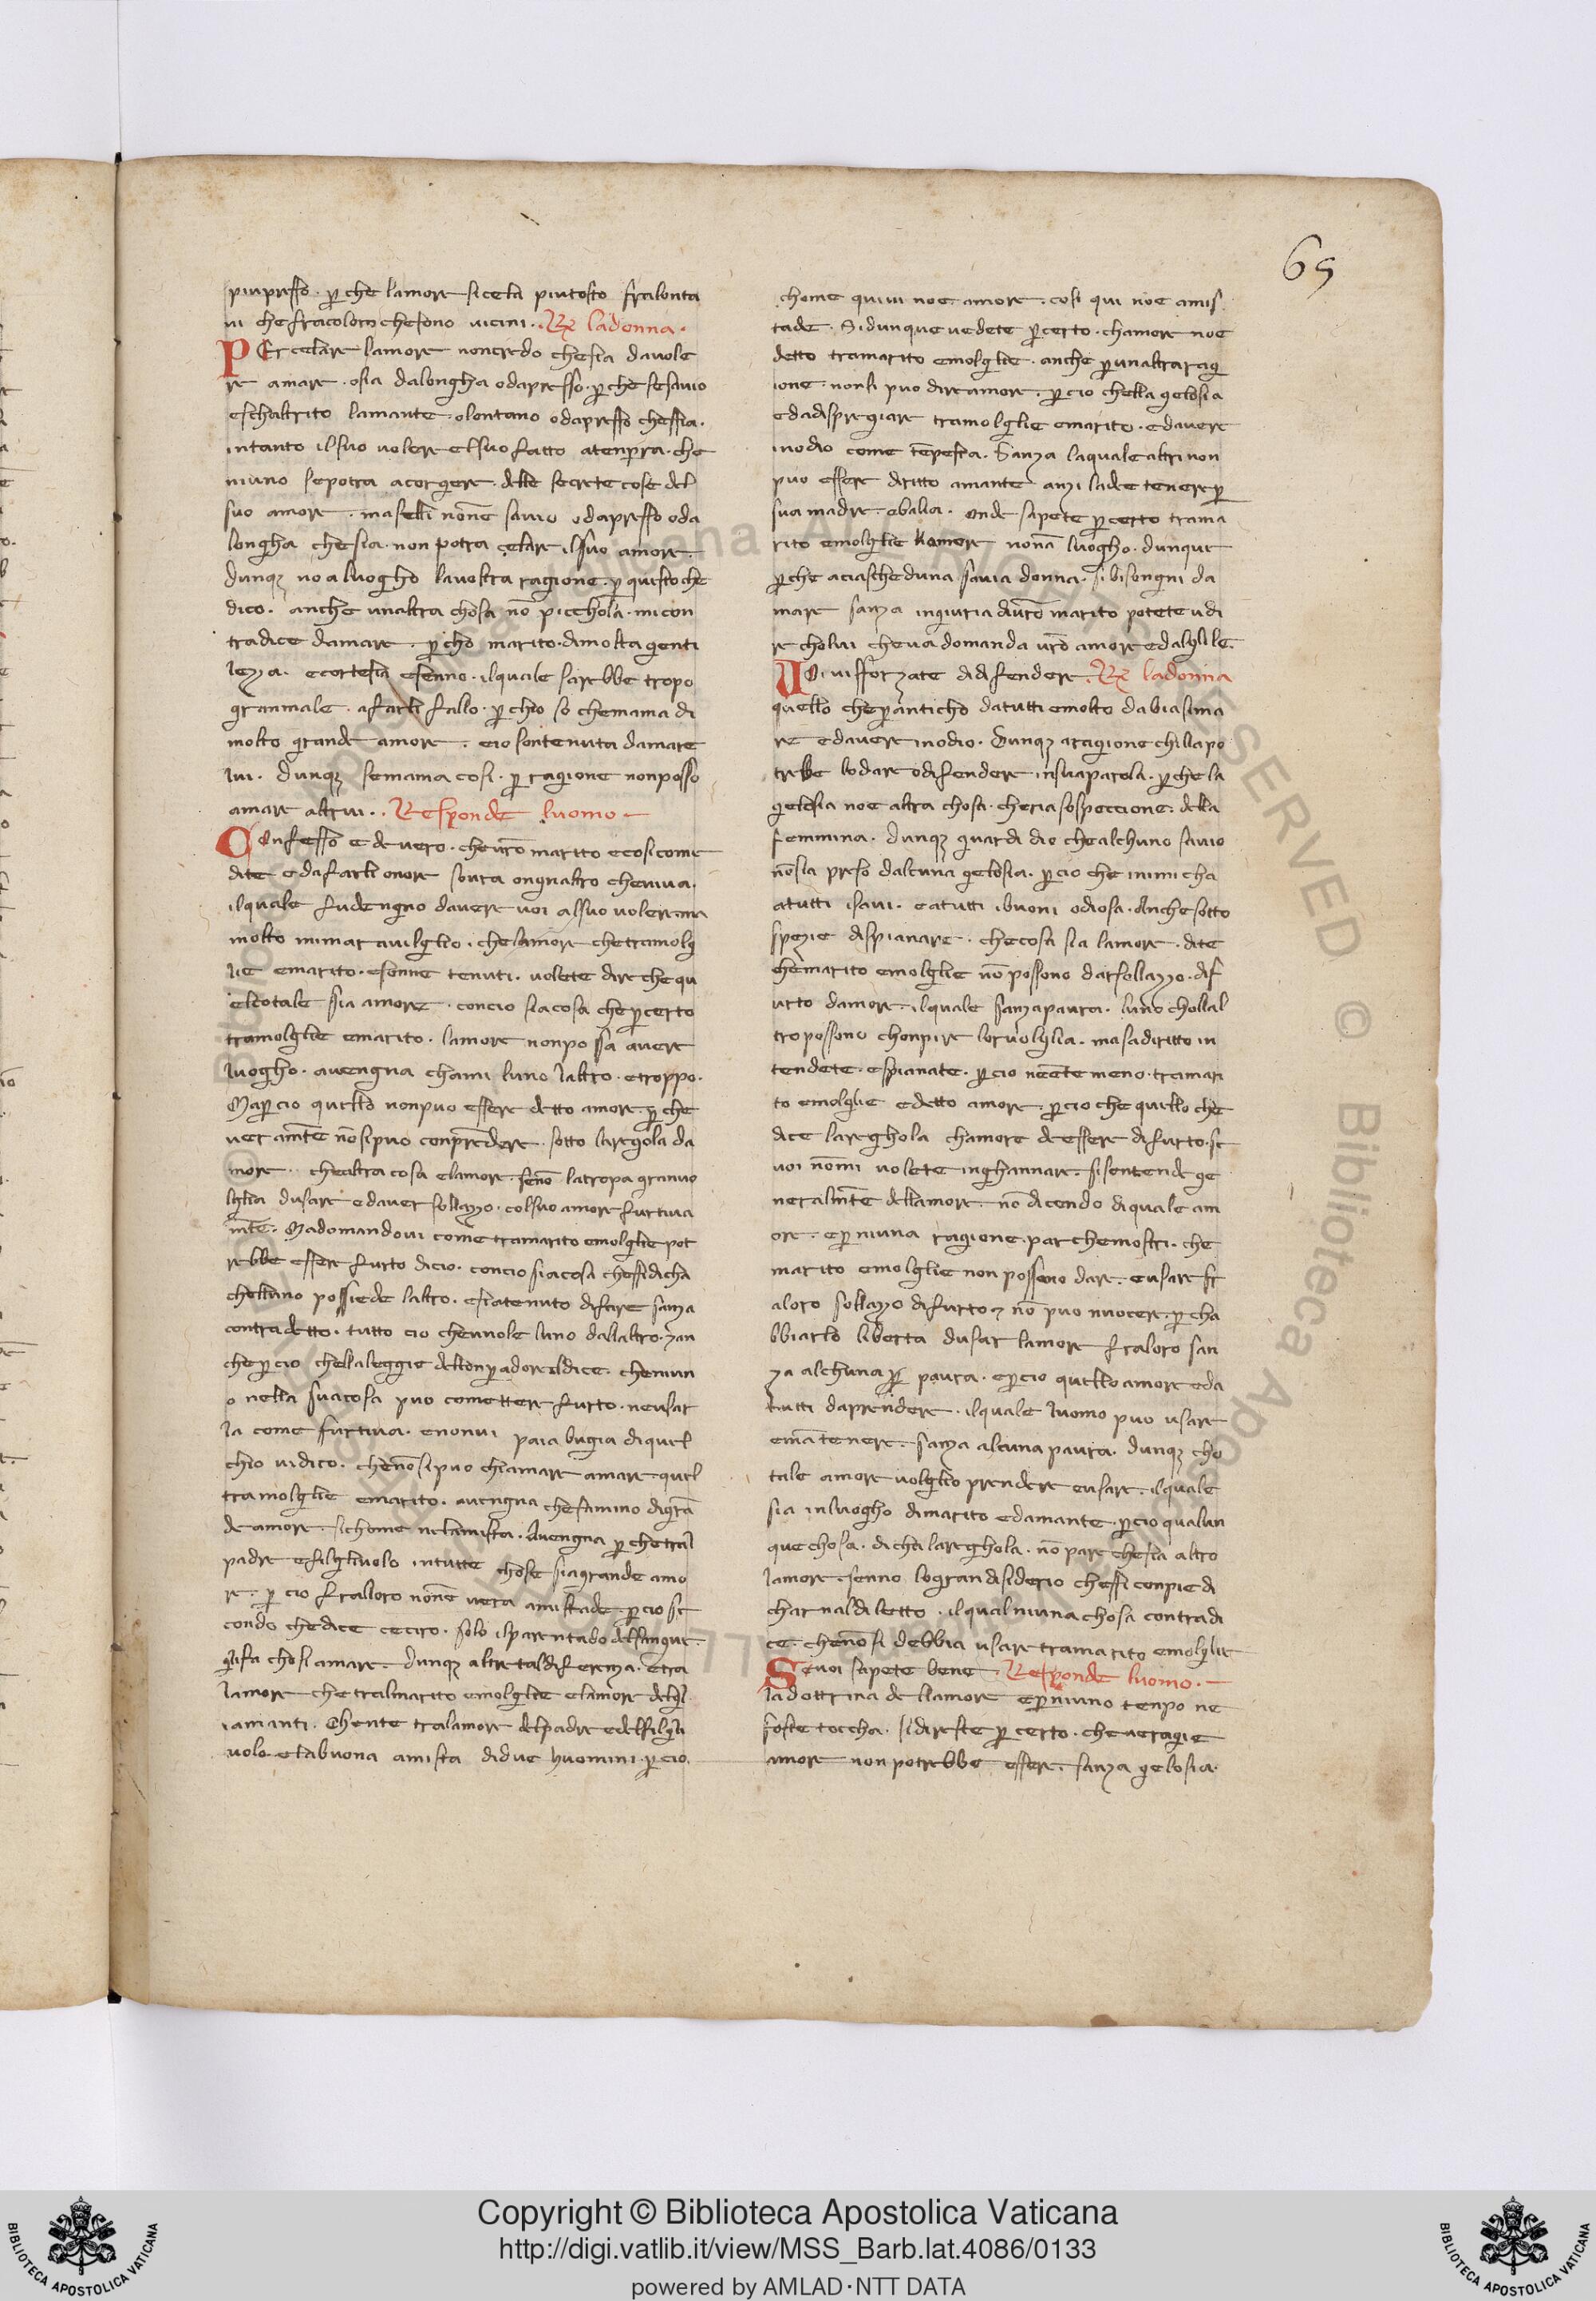 65
piupresso · p̄ che lamore siceta piutosto fralonta
ni che fracoloro chesono uicini · R̃ ladonna ·
PEr celare lamore noncredo chesia dauole
re amare · osia dalongha odapresso · p̄ che sesauio
eschaltrito lamante · olontano odapresso chessia ·
intanto ilsuo uolere elsuo fatto atenpra · che
niuno sepotra acorgiere · delle secrete cose del
suo amore · maselli none sauio odapresso oda
longha chesia · non potra celare ilsuo amore ·
dunqȝ no a luogho lauostra ragione · p̄ questo che
dico · anche unaltra chosa nō picchola · micon
tradice damare · p̄ cho marito · dimolta genti
lezza · ecortesia esenno · ilquale sarebbe tropo
granmale · afarli fallo · p̄ chio so chemama di
molto grande amore · eio sontenuta damare
lui · dunqȝ semama cosi · p̄ ragione nonposso
amare altrui · Responde luomo —
COnfesso e deuero · cheurō marito ecosicome
dite edafarli onore soura ongnaltro cheuiua ·
ilquale fudengno dauere uoi alsuo uolere · ma
molto mimarauilglio · chelamore chetramolg
lie emarito · esonne tenuti · uolete dire che qu
elcotale sia amore · concio siacosa che p̄certo
tramolglie emarito · lamore nonpossa auere
luogho · auengna chami luno laltro · etroppo ·
Map̄cio quello nonpuo essere detto amore · p̄ che
ueramēte nōsipuo conprēdere · sotto laregola da
more · chealtra cosa elamore · senō latropa granuo
lglia dusare edauer sollazzo · colsuo amore furtiua
mēte · Madomandoui come tramarito emolglie pot
rebbe essere furto dicio · concio siacosa chessidicha
chelluno possiede laltro · esiatenuto difare sanza
contradetto · tutto cio cheuuole luno dalaltro · zan
chep̄cio chellaleggie dellonpadore ildice · cheniun
o nella suacosa puo comettere furto · neusar
la come furtiua · enonui paia bugia diquel
chio uidico · chenōsipuo chiamare amare quel
tramolglie emarito · auengna chesamino digrā
de amore · sichome nelamista · Auengna p̄ chetral
padre efilgliuolo intutte chose siagrande amo
re · p̄ cio fralloro none uera amistade · p̄cio se
condo chedice ceciro · solo ilparentado delsangue ·
glisa chosi amare · dunqȝ altretaldiferenza · etra
lamore che tralmarito emolglie elamore degl
iamanti · Chente tralamore delpadre edelfilgli
uolo · elabuona amista didue huomini · p̄cio
chome quiui noe amore · cosi qui noe amis
tade · Sidunque uedete p̄certo · chamore noe
detto tramarito emolglie · anche p̄unaltraragi
ione · nonsi puo dire amore · p̄cio chella gelosia
edadispregiare tramolglie emarito · edauere
inodio come tēpesta · Sanza laquale altri non
puo essere diritto amante anzi ladee tenere p̄
sua madre · ebalia · Onde sapete p̄certo trama
rito emolglie lamore nonā luogho · dunque
p̄che aciascheduna sauia donna · sibisongni da
mare sanza ingiuria diurō marito potete udi
re cholui cheua domanda urō amore edalglile ·
UOi uisforzate didifendere · R̃ ladonna
quello chep̄anticho datutti emolto dabiasima
re edauere inodio · Dunqȝ aragione chillapo
trebbe lodare odifendere insuaparola · p̄che la
gelosia noe altra chosa · cheria sospeccione · della
femmina · dunqȝ guardi dio chealchuno sauio
nōsia preso dalcuna gelosia · p̄cio che inimicha
atutti isaui · eatutti ibuoni odiosa · Anchesotto
spezie dispianare · checosa sia lamore · dite
chemarito emolglie nō possono darsollazzo · dif
urto damore · ilquale sanzapaura · luno chollal
tropossono chonpire loruolglia · masadiritto in
tendete · espianate · p̄cio neente meno · tramari
to emolglie edetto amore · p̄cio che quello che
dice laregħola chamore deessere difurto · se
uoi nōmi uolete inghannare · sisontende ge
neralmēte dellamore · nō dicendo diquale am
ore · ep̄niuna ragione · par chemostri · che
marito emolglie non possono dare · eusare fr
aloro sollazzo difurto · nō puo nuocere · p̄ cha
bbiarlo liberta dusar lamore fraloro san
za alchuna p̄ paura · ep̄cio quello amore eda
tutti daprēndere · ilquale luomo puo usare
emātenere · sanza alcuna paura · dunqȝ cho
tale amore uolglio prendere eusare · ilquale
sia inluogho dimarito edamante · p̄cio qualun
que chosa · dicha laregħola · nō pare chesia altro
lamore · senno lograndisiderio chessi conpie di
charnaldiletto · ilqualniuna chosa contradi
ce · chenōsi debbia usare tramarito emolglie
SEuoi sapete bene · Responde luomo · —
ladottrina dellamore ep̄niuno tenpo ne
foste toccha · sidireste p̄ certo · che ueragie
amore non potrebbe essere · sanza gelosia ·
Copyright © Biblioteca Apostolica Vaticana
http://digi.vatlib.it/view/MSS_Barb.lat.4086/0133
powered by AMLAD·NTT DATA
BIBLIOTECA APOSTOLICA VATICANA
BIBLIOTECA APOSTOLICA VATICANA